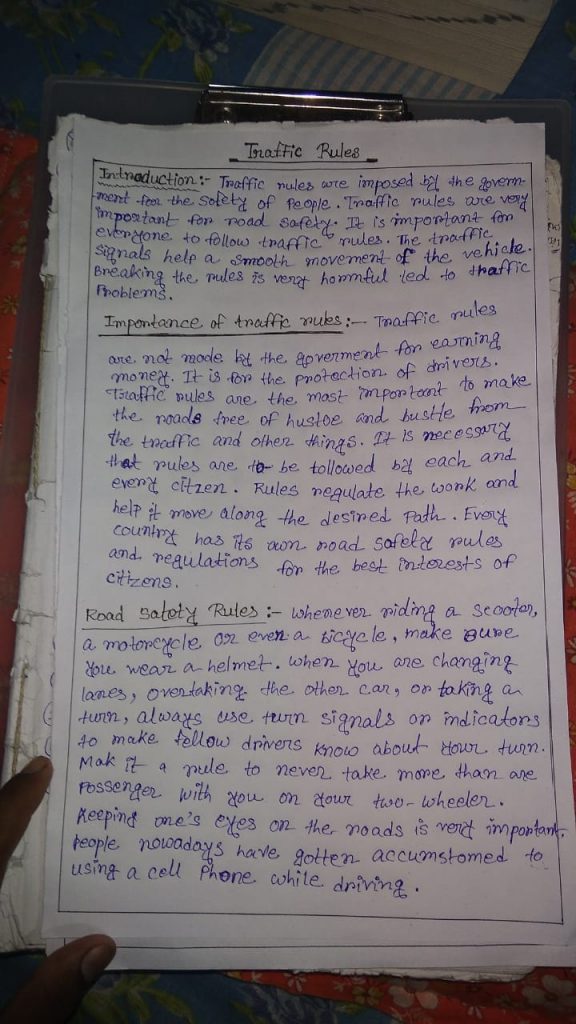 Traffic Rules
Introduction:- Traffic rules are imposed by the govern-
ment for the Safety of People. Traffic rules are very
important for road safety. It is important for
everyone to follow traffic rules. The traffic
Signals help a smooth movement of the vehicle.
Breaking the rules is very harmful led to traffic
Problems.
Importance of traffic rules:- Traffic rules
are not made by the goverment for earning
money. It is for the protection of drivers.
Traffic rules are the most important to make
the roads free of hustoe and bustle from
the traffic and other things. It is necessary
that rules are to be followed by each and
every citzen. Rules regulate the work and
help it move along the desired Path. Every
country has its own road safety rules
and regulations for the best interests of
citizens.
Road Safety Rules:- whenever riding a scooter,
a motorcycle or even a bicycle, make sure
you wear a helmet. when you are changing
lanes, overtaking the other car, or taking a
turn, always use turn signals or indicators
to make fellow drivers know about your turn.
Mak it a rule to never take more than one
Passenger with you on your two-wheeler.
Keeping one's eyes on the roads is very important.
People nowadays have gotten accumstomed to
using a cell Phone while driving.